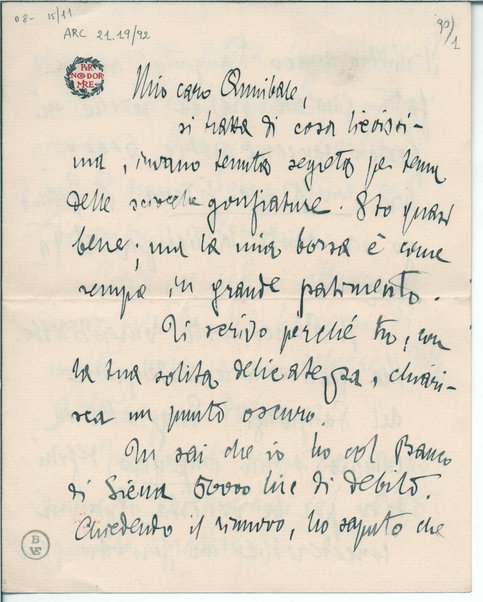 08- 15/11
ARC 21.19/92
90/1
PER
NON DOR
MIRE
Mio caro Annibale,
si tratta di cosa lievissi-
ma, invano tenuta segreta per tema
delle sciocche gonfiature. Sto quasi
bene; ma la mia borsa è come
sempre in grande patimento.
Ti scrivo perché tu, con
la tua solita delicatezza, chiari-
sca un punto oscuro.
Tu sai che io ho col Banco
di Siena 50000 lire di debito.
Chiedendo il rinnovo, ho saputo che
B
VE